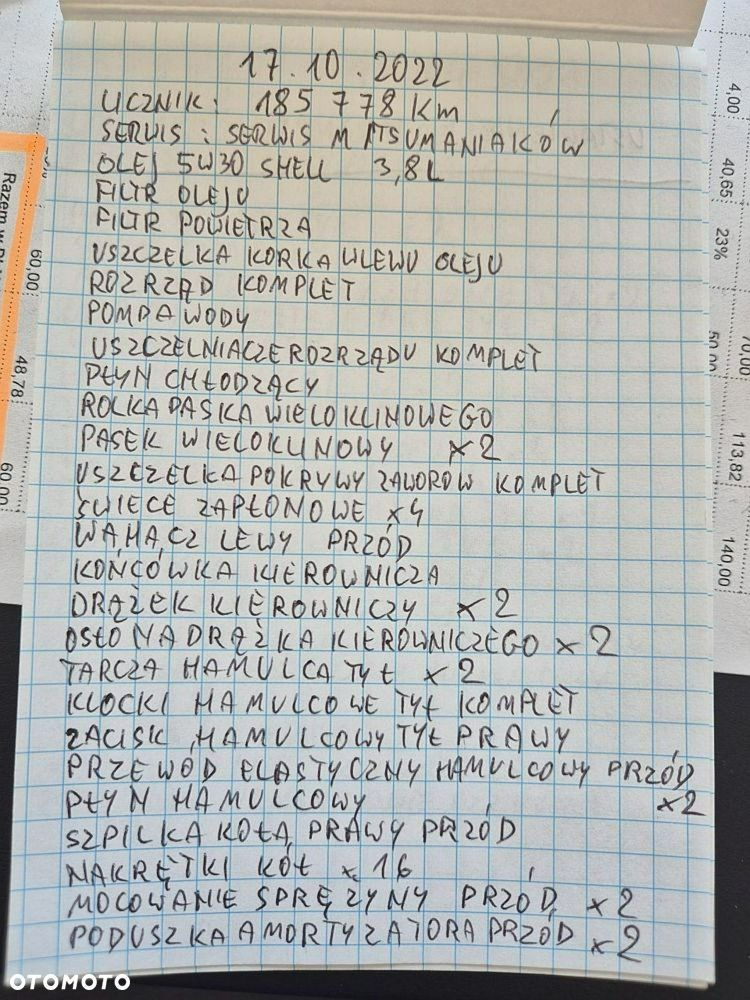 17.10.2022
LICZNIK: 185 778 KM
SERWIS: SERWIS MITSUMANIAKÓW
OLEJ 5W30 SHELL 3,8L
FILTR OLEJU
FILTR POWIETRZA
USZCZELKA KORKA WLEWU OLEJU
ROZRZĄD KOMPLET
POMPA WODY
USZCZELNIACZE ROZRZĄDU KOMPLET
PŁYN CHŁODZĄCY
ROLKA PASKA WIELOKLINOWEGO
PASEK WIELOKLINOWY x2
USZCZELKA POKRYWY ZAWORÓW KOMPLET
ŚWIECE ZAPŁONOWE x4
WAHACZ LEWY PRZÓD
KOŃCÓWKA KIEROWNICZA
DRĄŻEK KIEROWNICZY x2
OSŁONA DRĄŻKA KIEROWNICZEGO x2
TARCZA HAMULCA TYŁ x2
KLOCKI HAMULCOWE TYŁ KOMPLET
ZACISK HAMULCOWY TYŁ PRAWY
PRZEWÓD ELASTYCZNY HAMULCOWY PRZÓD x2
PŁYN HAMULCOWY
SZPILKA KOŁA PRAWY PRZÓD
NAKRĘTKI KÓŁ x16
MOCOWANIE SPRĘŻYNY PRZÓD x2
PODUSZKA AMORTYZATORA PRZÓD x2
Razem w
60,00
48,78
60,00
4,00
40,65
23%
50,00
70,00
113,82
140,00
OTOMOTO